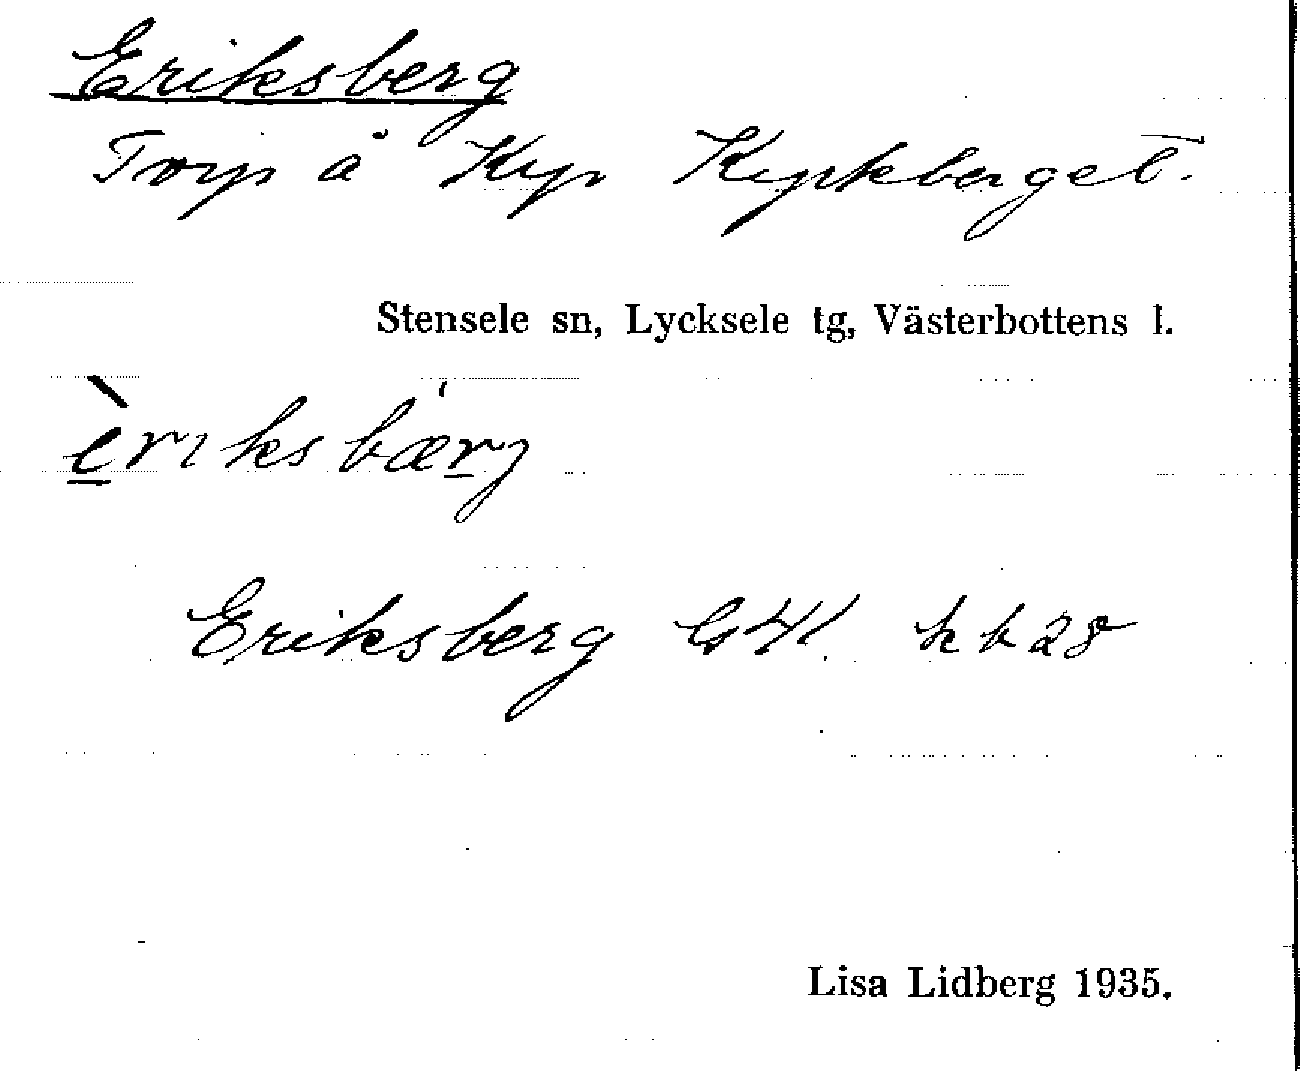 Eriksberg
Torp å Kyrkberget.
Stensele sn, Lycksele tg, Västerbottens l.
èriksbærj
Eriksberg G41 kb28
Lisa Lidberg 1935.